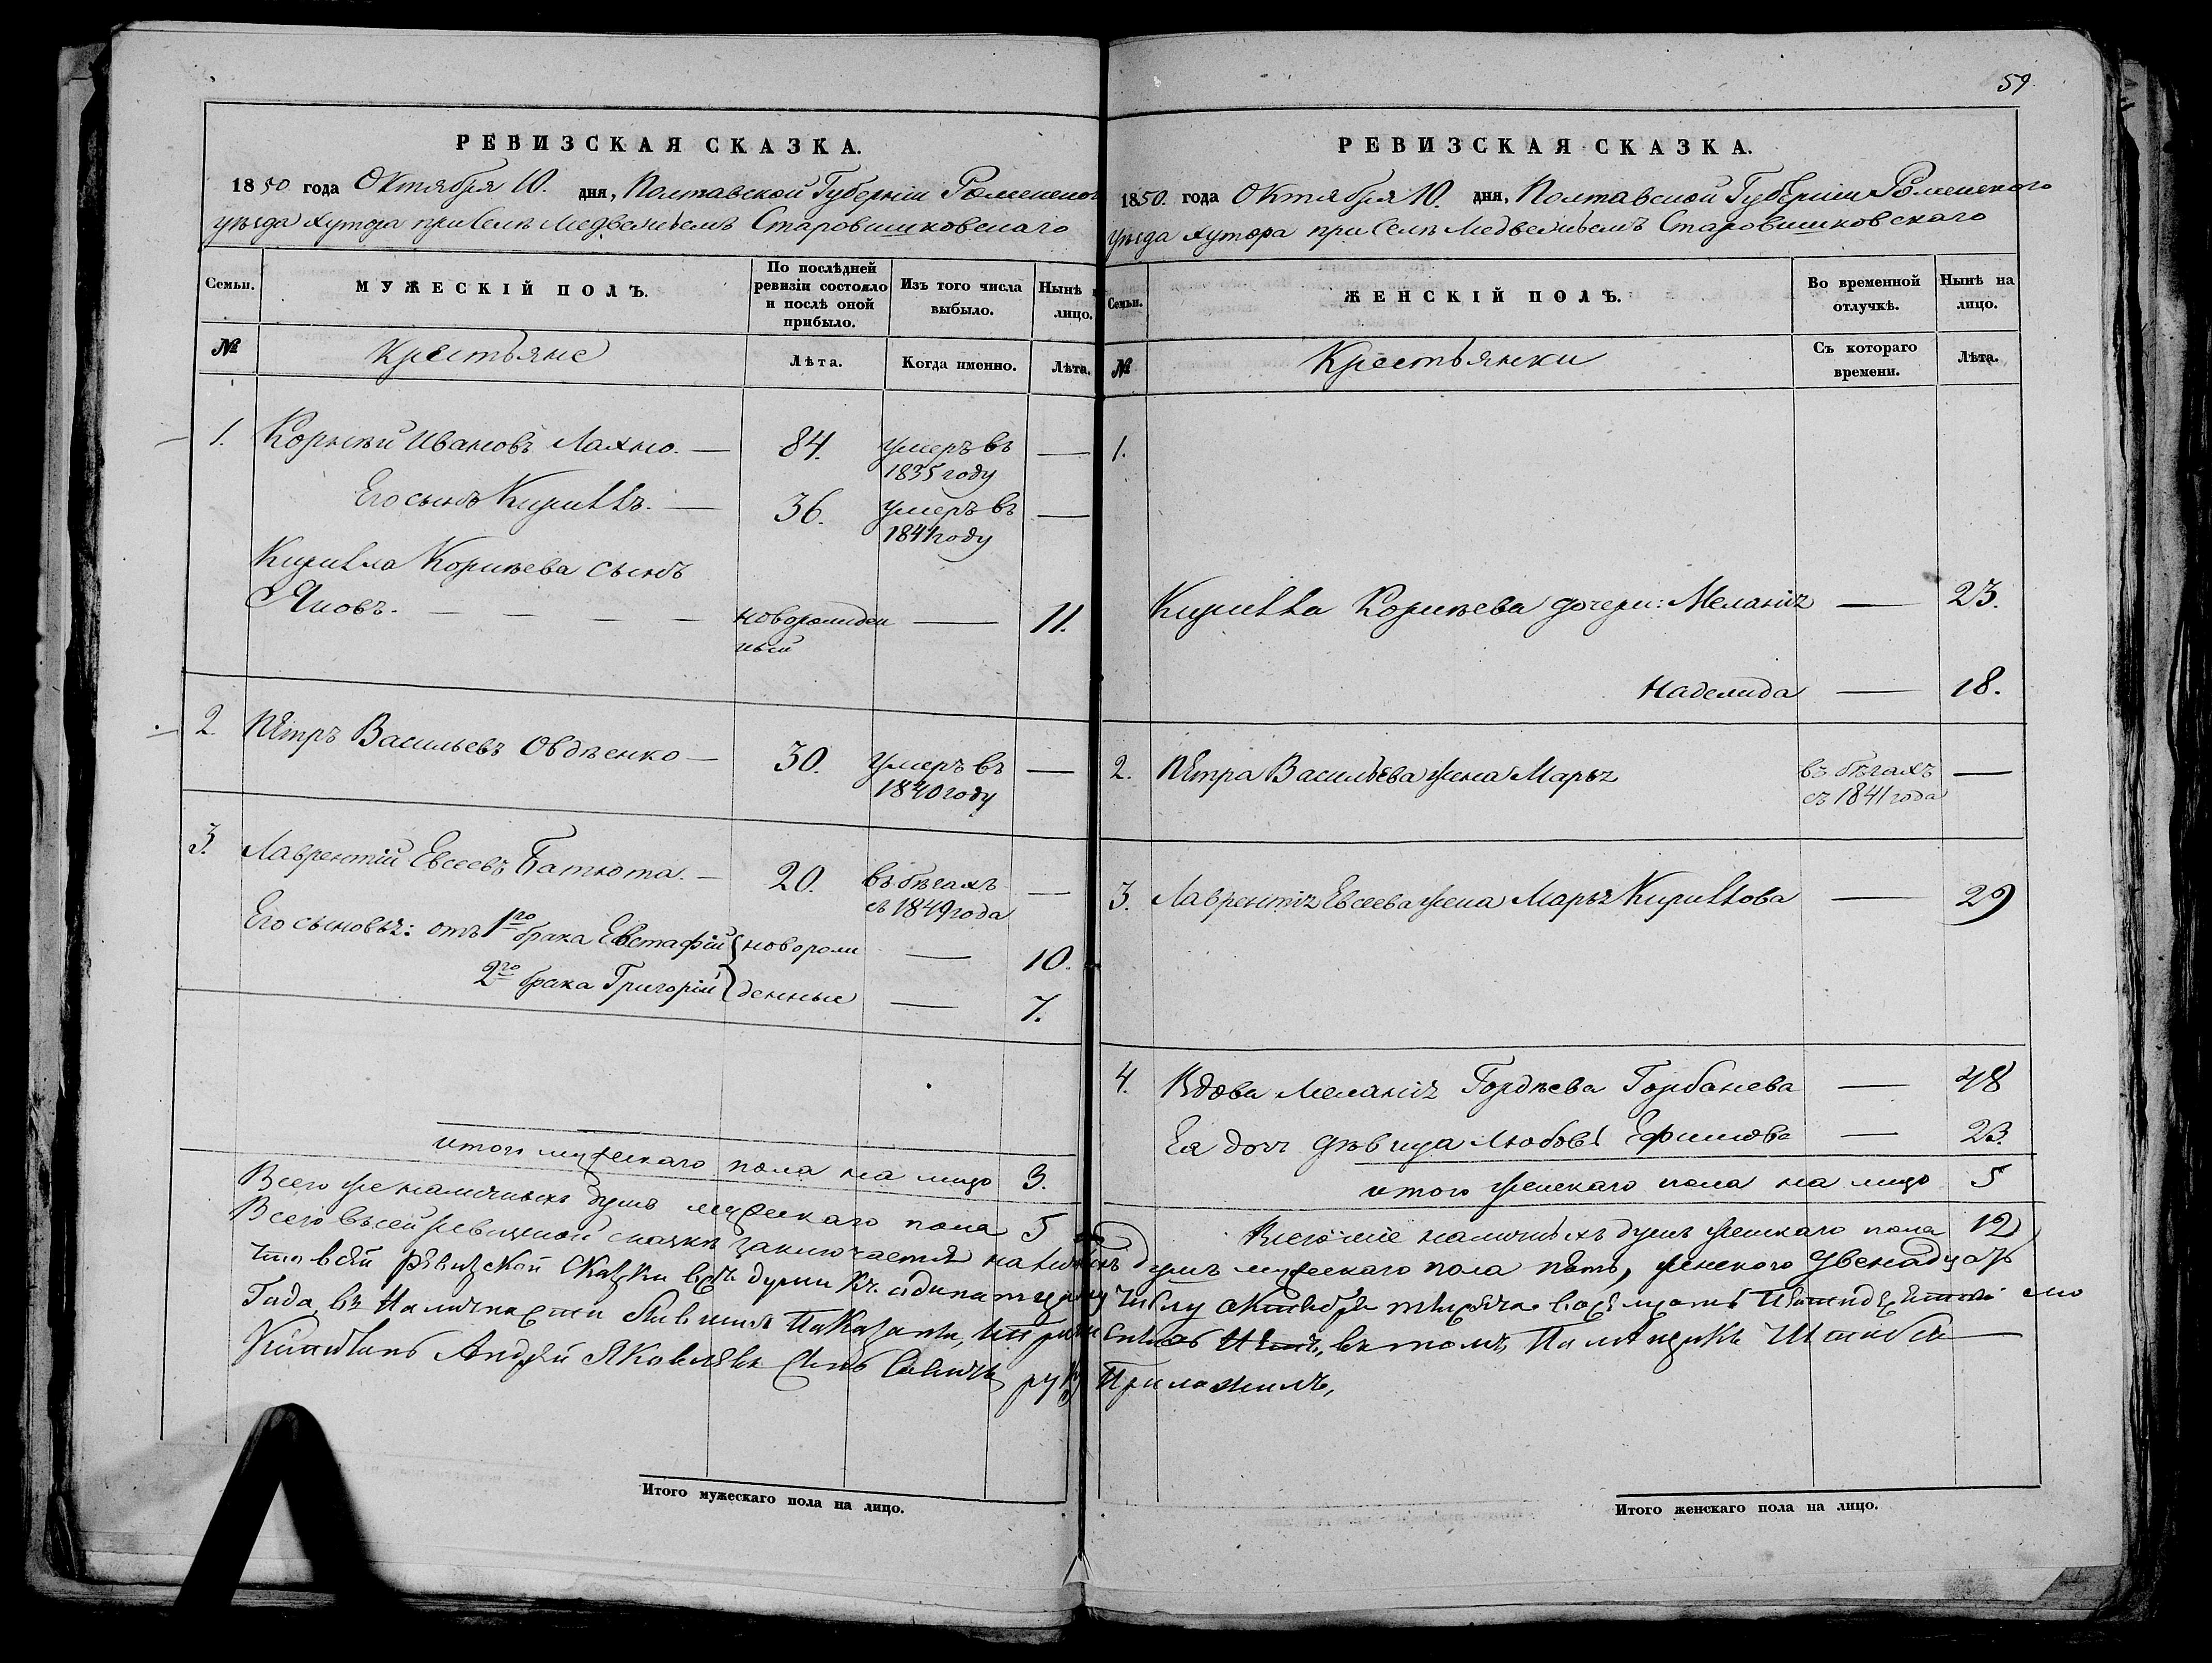 РЕВИЗСКАЯ СКАЗКА.
1850 года Октября 10. дня, Полтавской Губерніи Роменскаго
уѣзда хутора при селѣ Медвежьемъ Старовишковскаго
Семьи.
МУЖЕСКІЙ ПОЛЪ.
По послѣдней ревизіи состояло и послѣ оной прибыло.
Изъ того числа выбыло.
Нынѣ лицо.
№
Крестьяне
Лѣта.
Когда именно.
Лѣта.
1. Корнѣй Ивановъ Лахно. — 84. умеръ въ —
1835 году
Его сынъ Кирилъ. — 36. умеръ въ —
1841 году
Кирилла Корнѣева сынъ
Яковъ. — — — — новорожден — 11.
ный
2. Петръ Васильевъ Овдѣенко — 30. умеръ въ —
1840 году
3. Лаврентій Евсеевъ Батюта. — 20. въ бѣгахъ —
съ 1849 года
Его сыновья: отъ 1го брака Евстафій новорож — 10.
2го брака Григорій денные — 7.
итого мужескаго пола на лицо 3.
Всего же наличныхъ душъ мужескаго пола 5
Итого мужескаго пола на лицо.
59
РЕВИЗСКАЯ СКАЗКА.
1850. года Октября 10. дня, Полтавской Губерніи Роменского
уѣзда хутора при селѣ Медвежьемъ Старовишковскаго
Семьи.
ЖЕНСКІЙ ПОЛЪ.
Во временной отлучкѣ.
Нынѣ на лицо.
№
Крестьянки
Съ котораго времени.
Лѣта.
1.
Кирилла Корнѣева дочери: Меланія — 23.
Надежда — 18.
2. Петра Васильева жена Марья въ бѣгахъ —
съ 1841 года
3. Лаврентія Евсеева жена Марья Кирилова — 29
4. Вдова Меланія Гордѣева Горбанева — 48
Ея дочь дѣвица Любовь Ефимова — 23.
итого женскаго пола на лицо 5
Всего же наличныхъ душъ женскаго пола 12
Всего въ сей ревизской сказкѣ заключается наличныхъ душъ мужескаго пола пять, женского двенадцать
что всей ревизской сказки всѣ души къ одинатцатому числу октября тысяча восемсотъ
Года въ наличности показаны,
Андрей Яковлевъ сынъ руку приложилъ,
Итого женскаго пола на лицо.